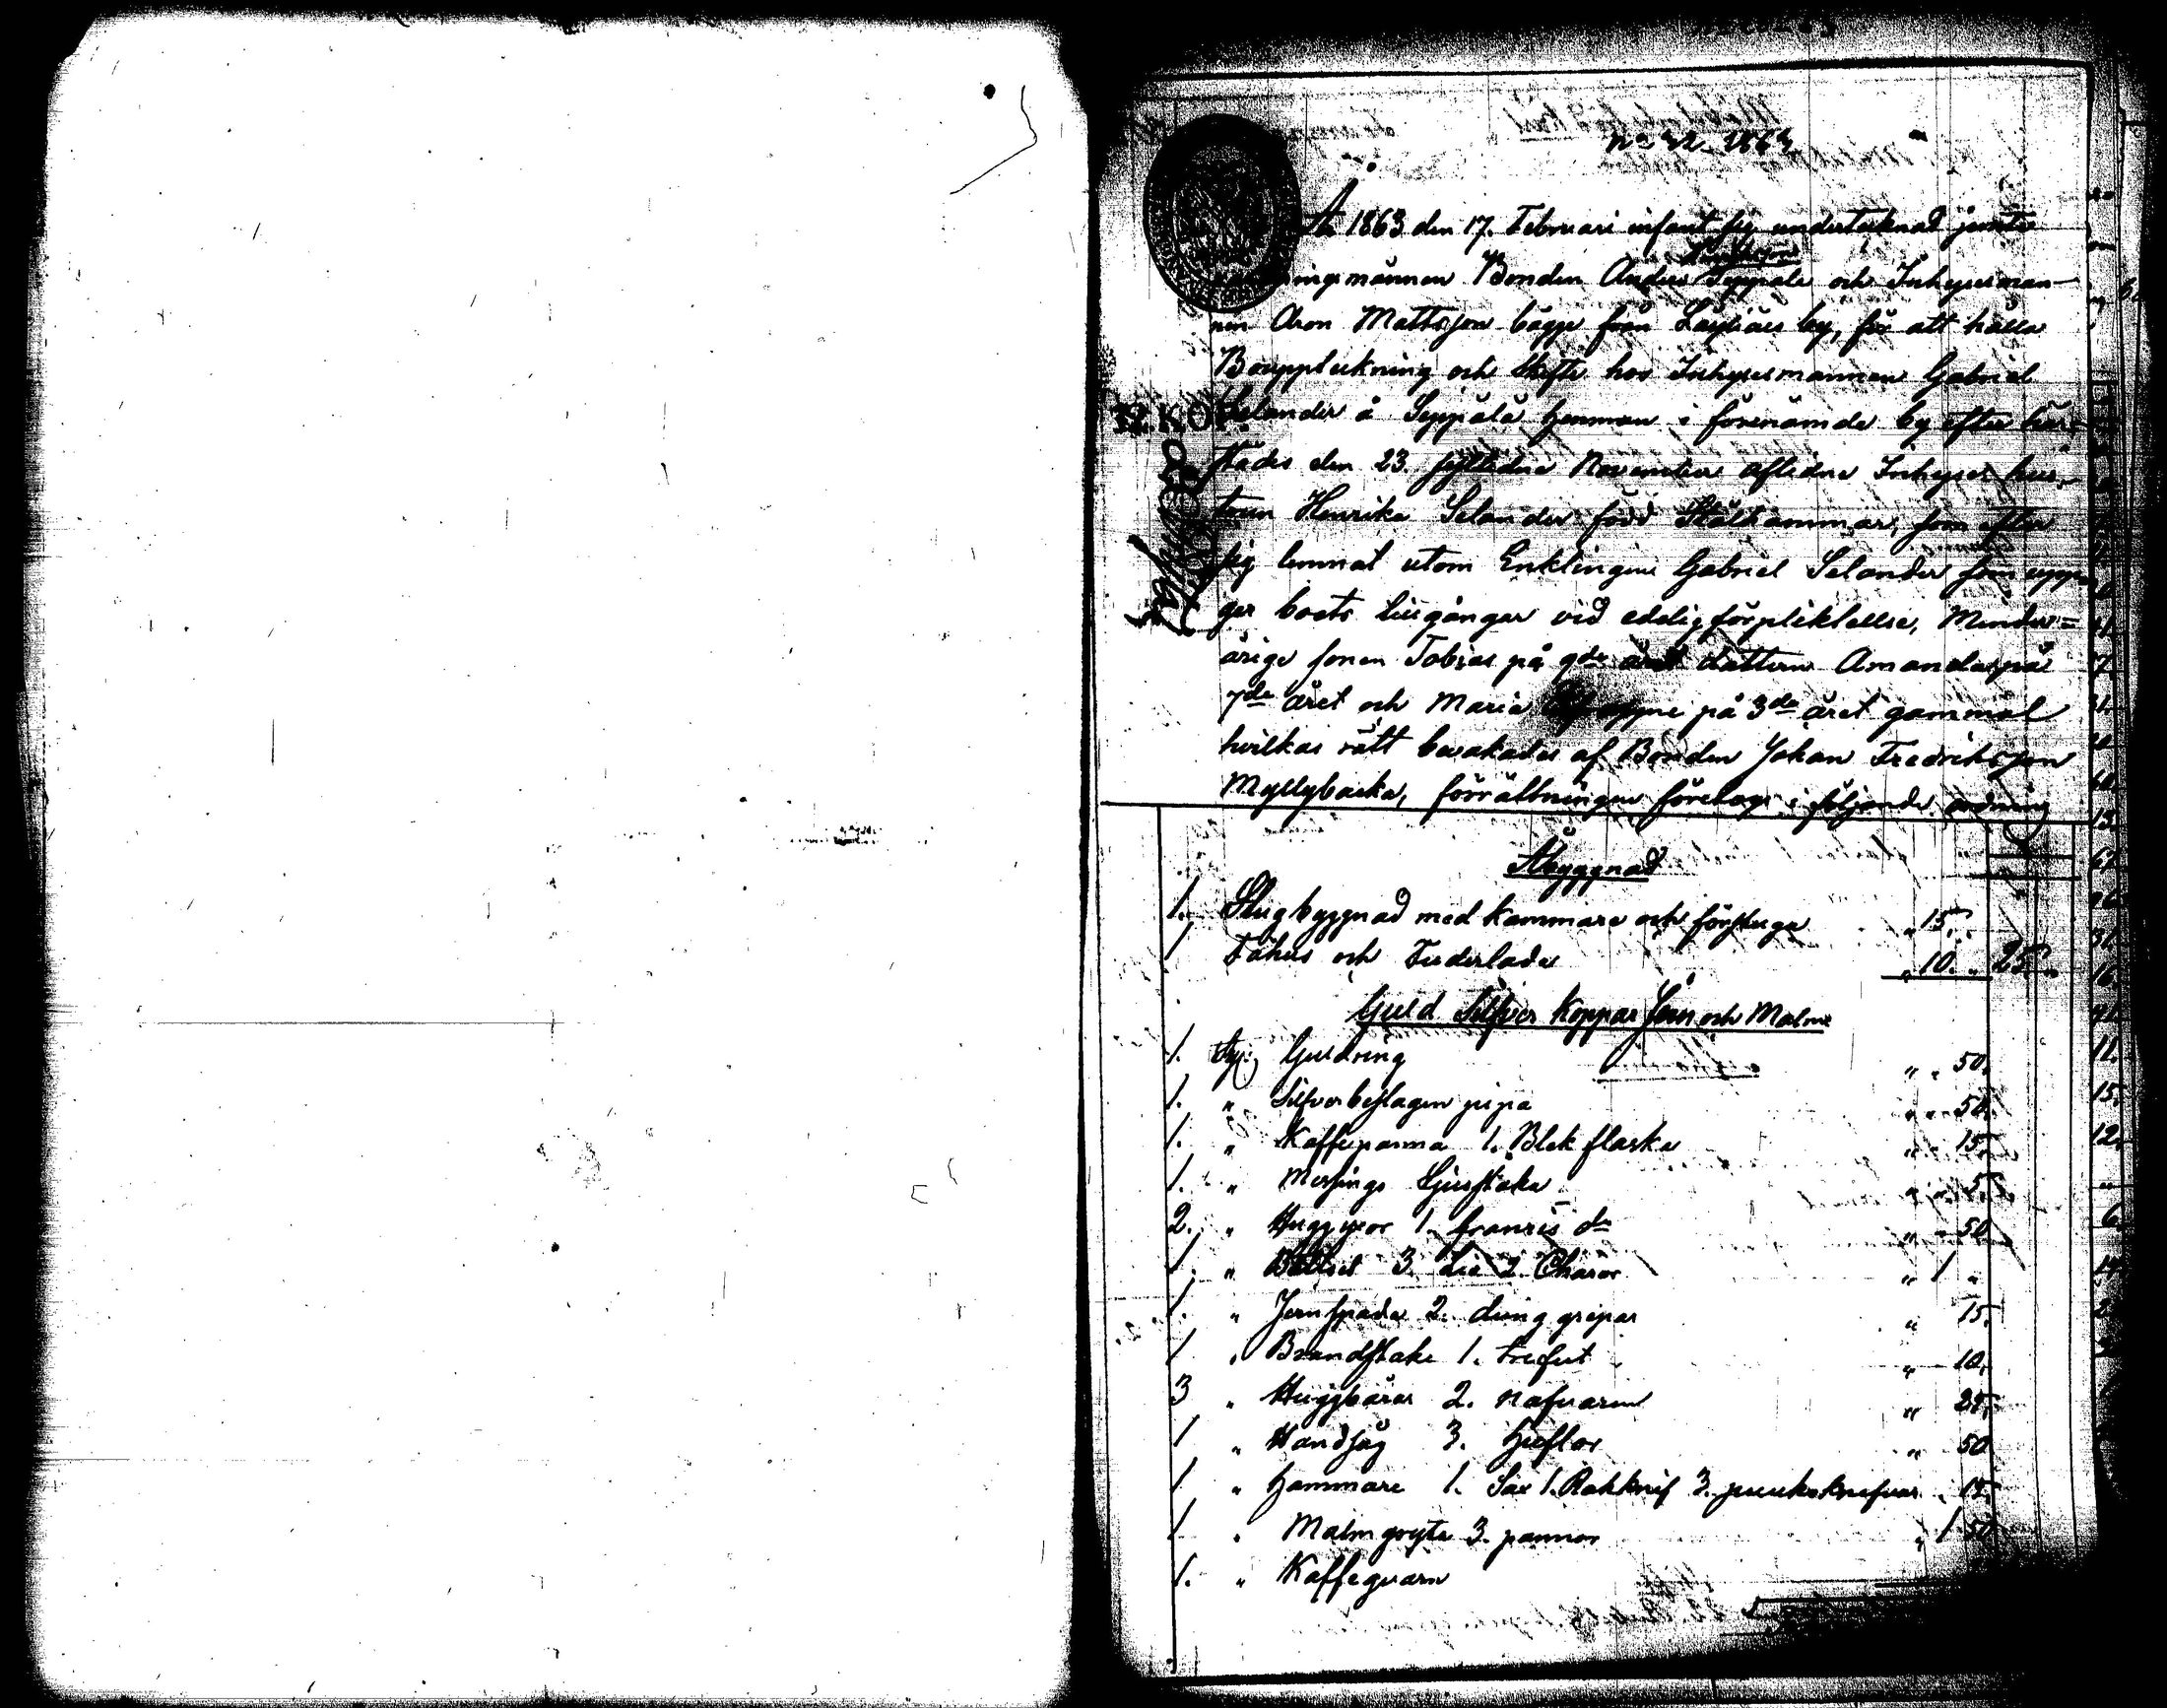 No 32 1863
År 1863 den 17. Februari infant sig undertecknad jemte
Anders Seppälä och Inhysesman-
nen Aron Mattsson bägge från by, för att hålla
Bouppteckning och Skifte hos Inhysesmannen Gabriel
Selander å Seppälä hemman i förenämde by efter här-
städes den 23 sistlidne November aflidne Inhyses hus-
trun Henrika Selander född Stålhammar, som efter
sig lemnat utom Enklingen Gabriel Selander som uppe
ger boets tillgångar vid edelig förpliktellse, Minder=
årige sonen Tobias på 9de året dottren Amanda på
7de året och Maria på 3de året gammal
hvilkas rätt bevakades af Bonden Johan Fredriksson
Myllybacka, förrättningen företogs i följande ordning
32 KOP.
Åbyggnad
1. Stugbyggnad med kammare och förstuga " 15. "
1 Fähus och Fuderlada " 10. " 25. "
Guld Silfver Koppar Jern och Malm
1. St: Guldring " " 50.
1. " Silfverbeslagen pipa " " 50.
1. " Kaffepanna 1. Bleck flaska " " 15.
1. " Messings Ljusstaka " " 5.
2. " Huggyxor 1. do " " 50
1. " 3. Lia 2. " 1 "
1. " Jernspada 2. dung grepar " 15.
1 " Brandstake 1. trefot " 10.
3 " Huggbårar 2. nafvaren " 25.
1 " Handsåg 3. Hyflar " 50
1 " Hammare 1. Sax 1. Rakknif 3. knifvar " 15.
1 " Malm gryta 3. pannor " 1 50
1. " Kaffeqvarn